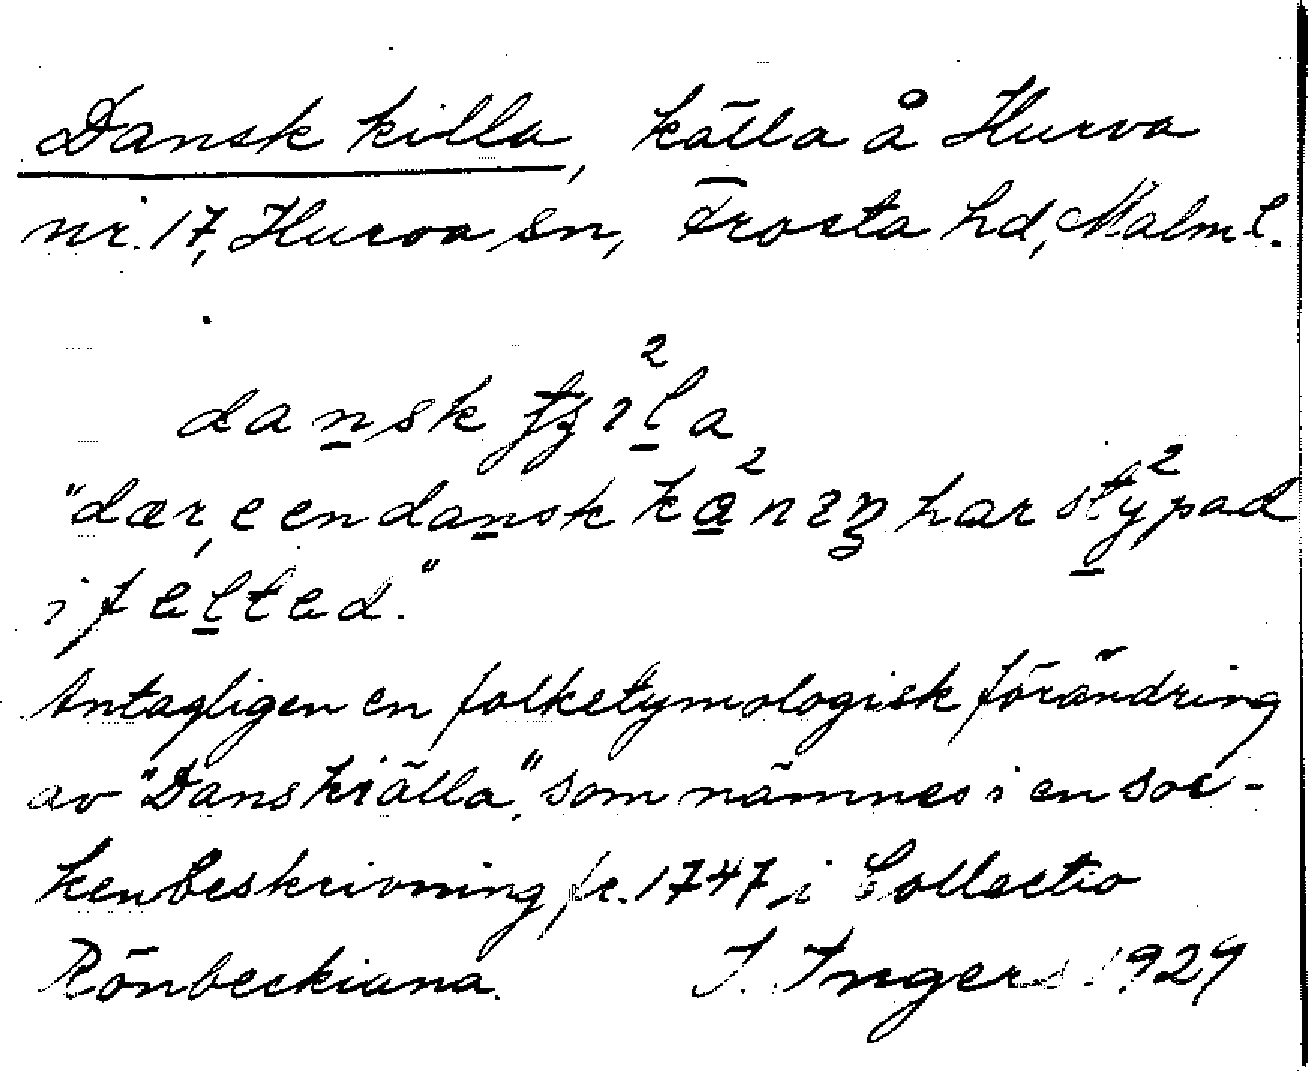 Dansk killa, källa å Hurva
nr. 17, Hurva sn, Frosta hd, Malm l.
dansk tʒıl²a
"dær, e en dansk ka²nıŋ har sty²pad
i felted."
Antagligen en folketymologisk förändring
av "Danskiälla", som nämnes i en soc-
kenbeskrivning fr. 1747 i Collectio
Rönbeckiana. I. Ingers 1929